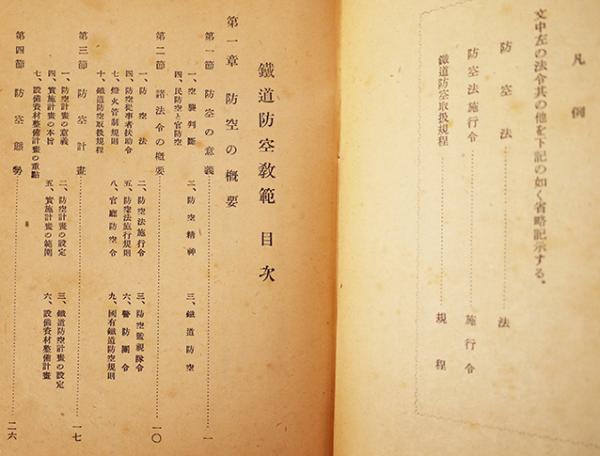 凡例
文中左の法令其の他を下記の如く省略記示する。
防空法……法
防空法施行令……施行令
鐵道防空取扱規程……規程
鐵道防空教範目次
第一章 防空の概要
第一節 防空の意義……一
一、空襲判斷 二、防空精神 三、鐵道防空
四、民防空と官防空
第二節 諸法令の概要……一〇
一、防空法 二、防空法施行令 三、防空監視隊令
四、防空從事者扶助令 五、防空法施行規則 六、警防團令
七、燈火管制規則 八、官廳防空令 九、國有鐵道防空規則
十、鐵道防空取扱規程
第三節 防空計畫……一七
一、防空計畫の意義 二、防空計畫の設定 三、鐵道防空計畫の設定
四、實施計畫の本旨 五、實施計畫の範圍 六、設備資材整備計畫
七、設備資材整備計畫の重點
第四節 防空態勢……二六